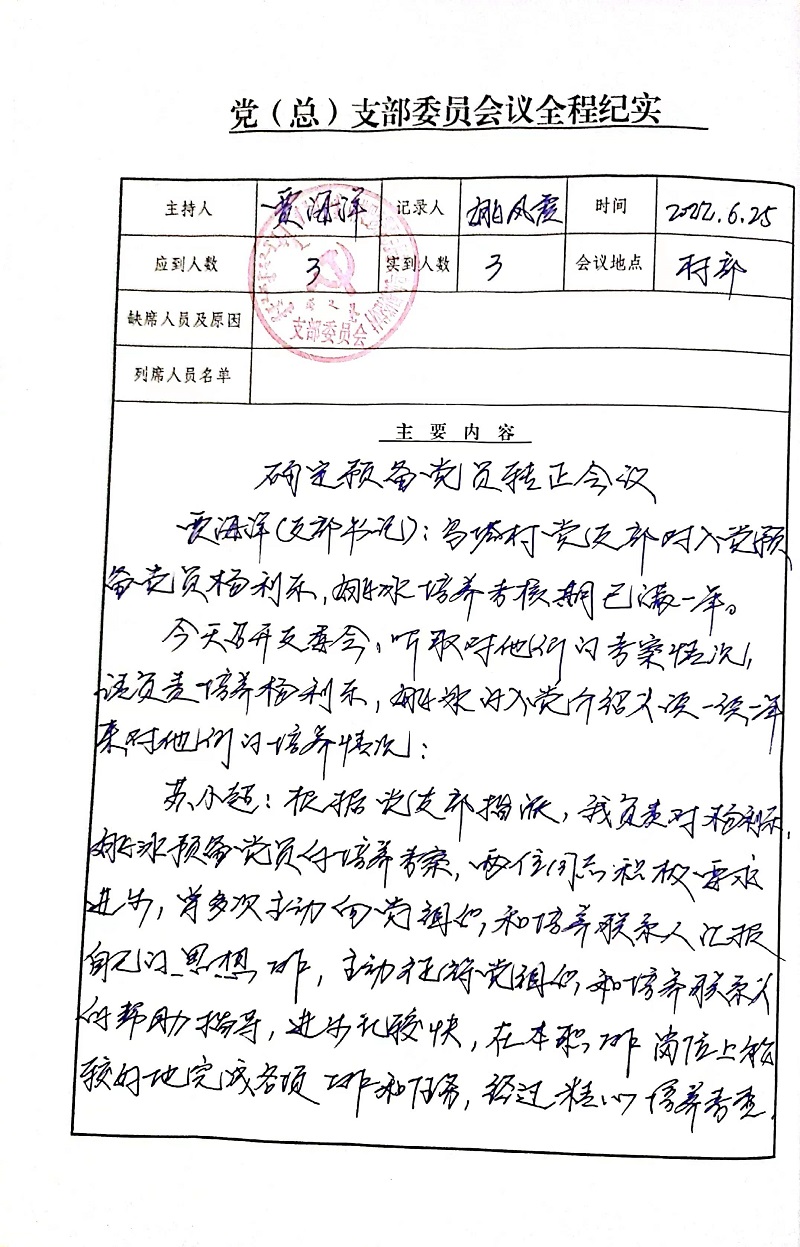 党（总）支部委员会议全程纪实
主持人 贾海洋 记录人 姚凤霞 时间 2022.6.25
应到人数 3 实到人数 3 会议地点 村部
支部委员会
缺席人员及原因
列席人员名单
主要内容
确定预备党员转正会议
贾海洋(支部书记)：村党支部对入党预
备党员杨利东,姚冰培养考核期已满一年。
今天召开支委会,听取对他们的考察情况,
请负责培养杨利东,姚冰的入党介绍人谈一谈一年
来对他们的培养情况：
苏小超：根据党支部指派,我负责对杨利东,
姚冰预备党员的培养考察,两位同志积极要求
进步,曾多次主动向党组织,和培养联系人汇报
自己的思想工作,主动征得党组织,和培养联系人
的帮助指导,进步比较快,在本职工作岗位上能
较好地完成各项工作和任务,经过精心培养考查,